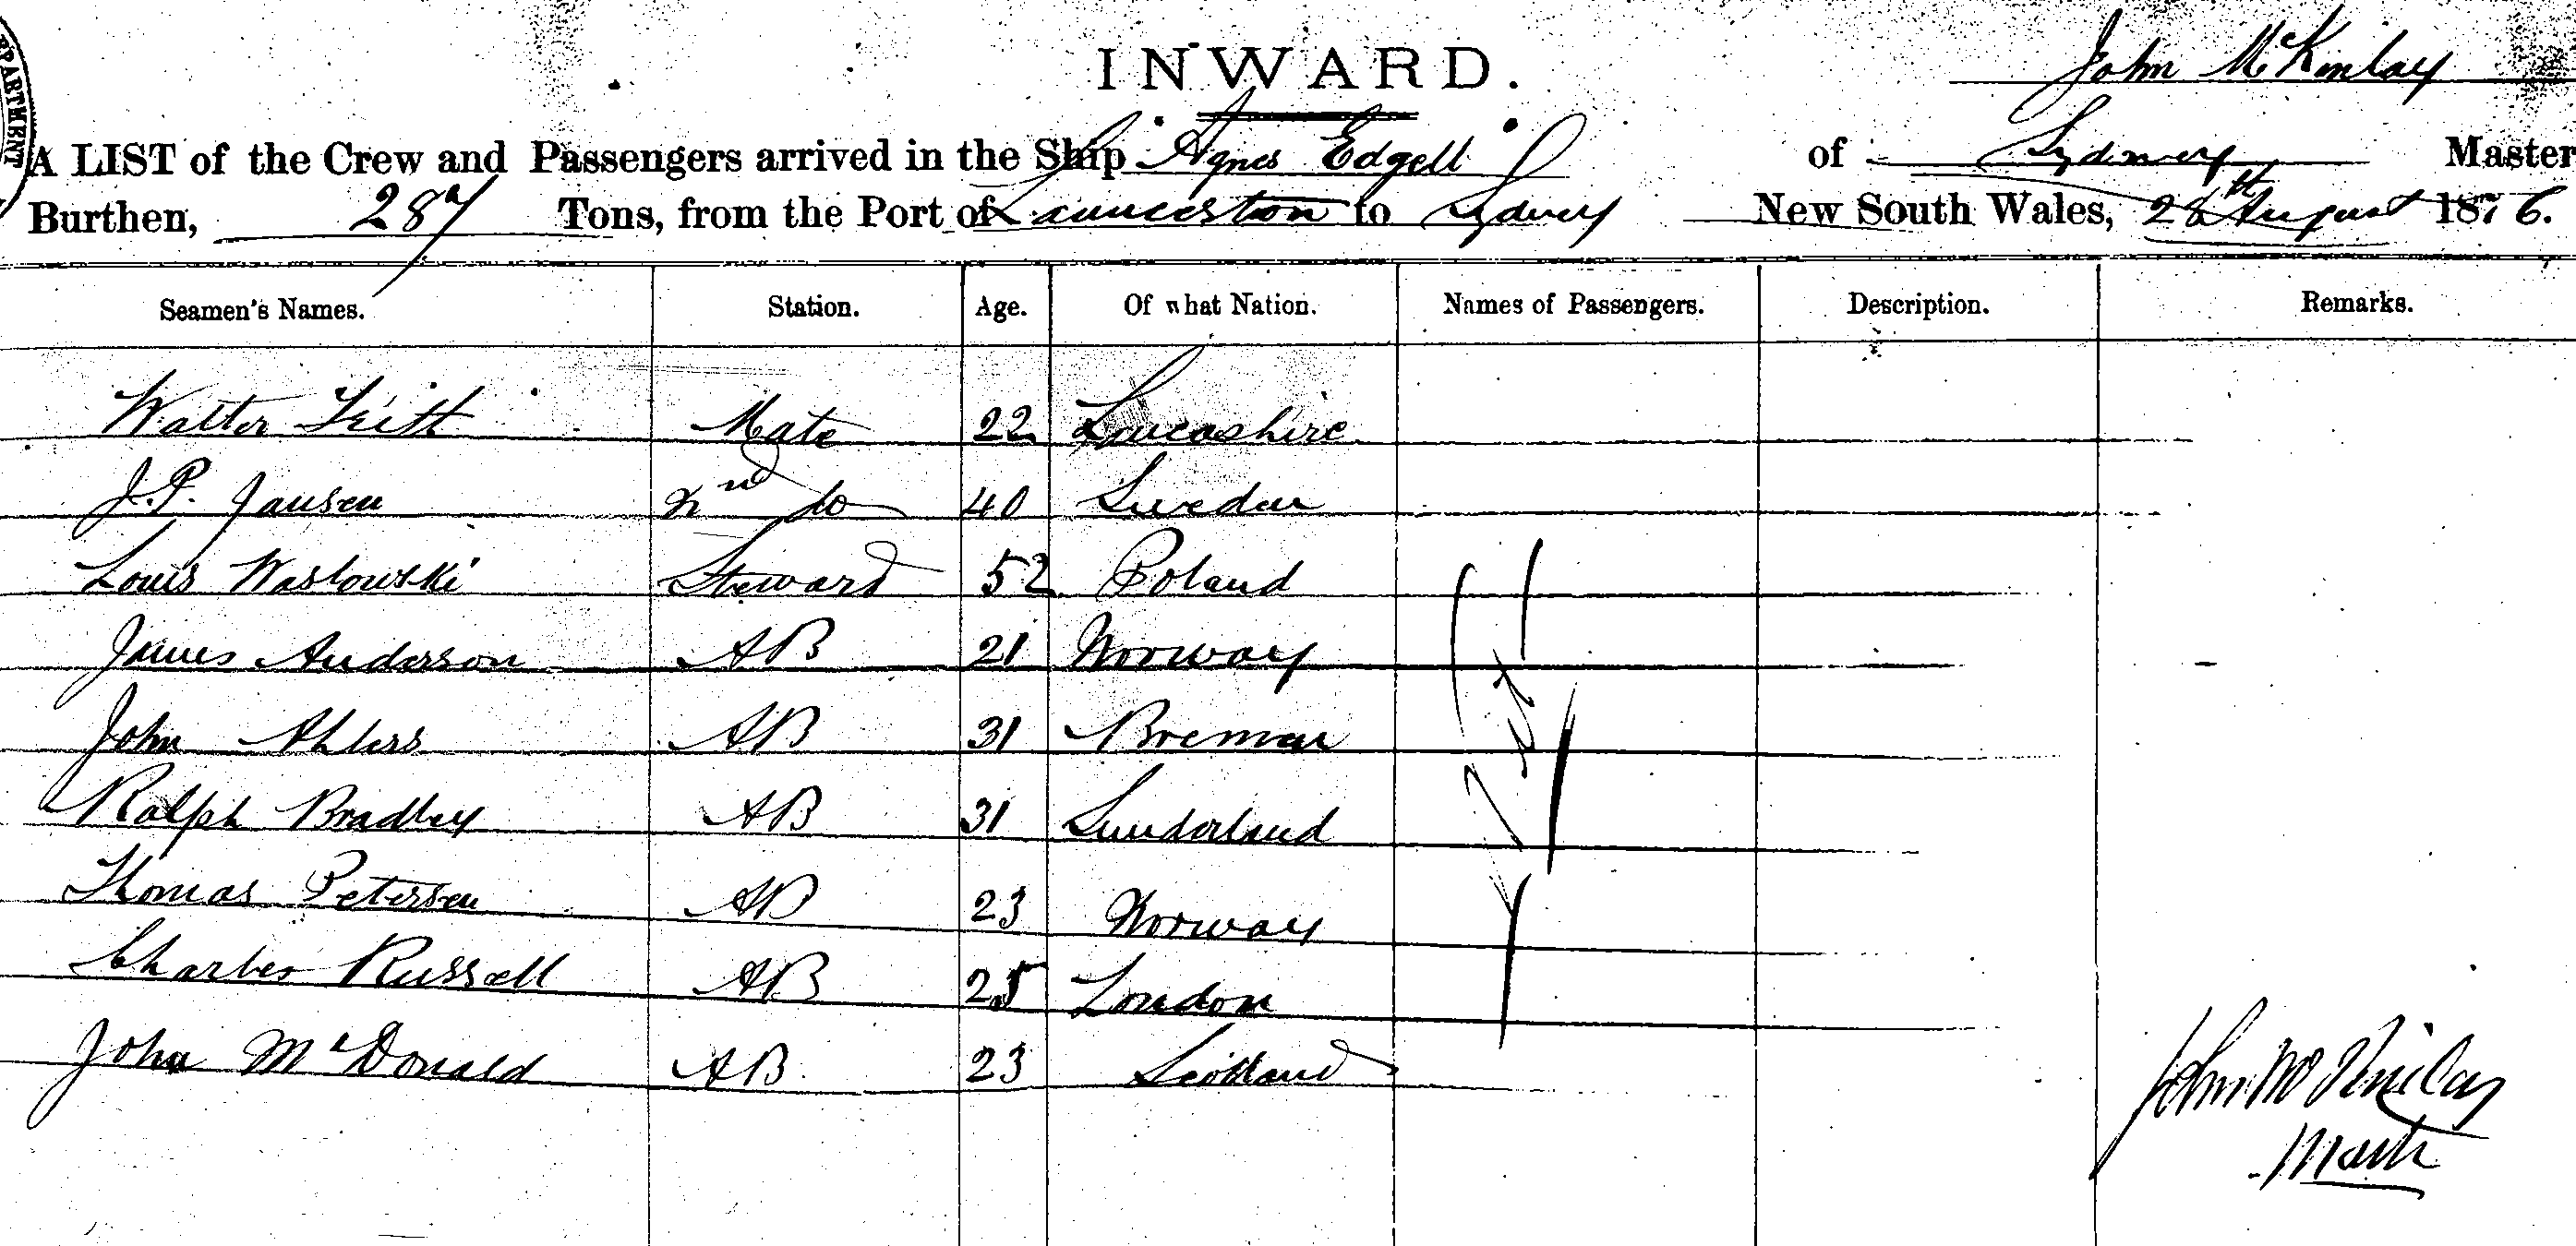 EPARTMENT
INWARD.
John McKinlay
A LIST of the Crew and Passengers arrived in the Ship Agnes Edgell of Sydney Master
Burthen, 287 Tons, from the Port of Launceston to Sydney New South Wales, 28th August 1876.
Seamen's Names. Station. Age. Of what Nation. Names of Passengers. Description. Remarks.
Walter Mate 22 Lancashire
J.P. Jansen 2nd do 40 Sweden
Louis Waslowski Steward 52 Poland
James Anderson AB 21 Norway
John Ahlers AB 31 Bremen
Ralph Bradley AB 31 Sunderland
Thomas Petersen AB 23 Norway
Charles Russell AB 25 London
John McDonald AB 23 Scotland
John McKinlay
Master